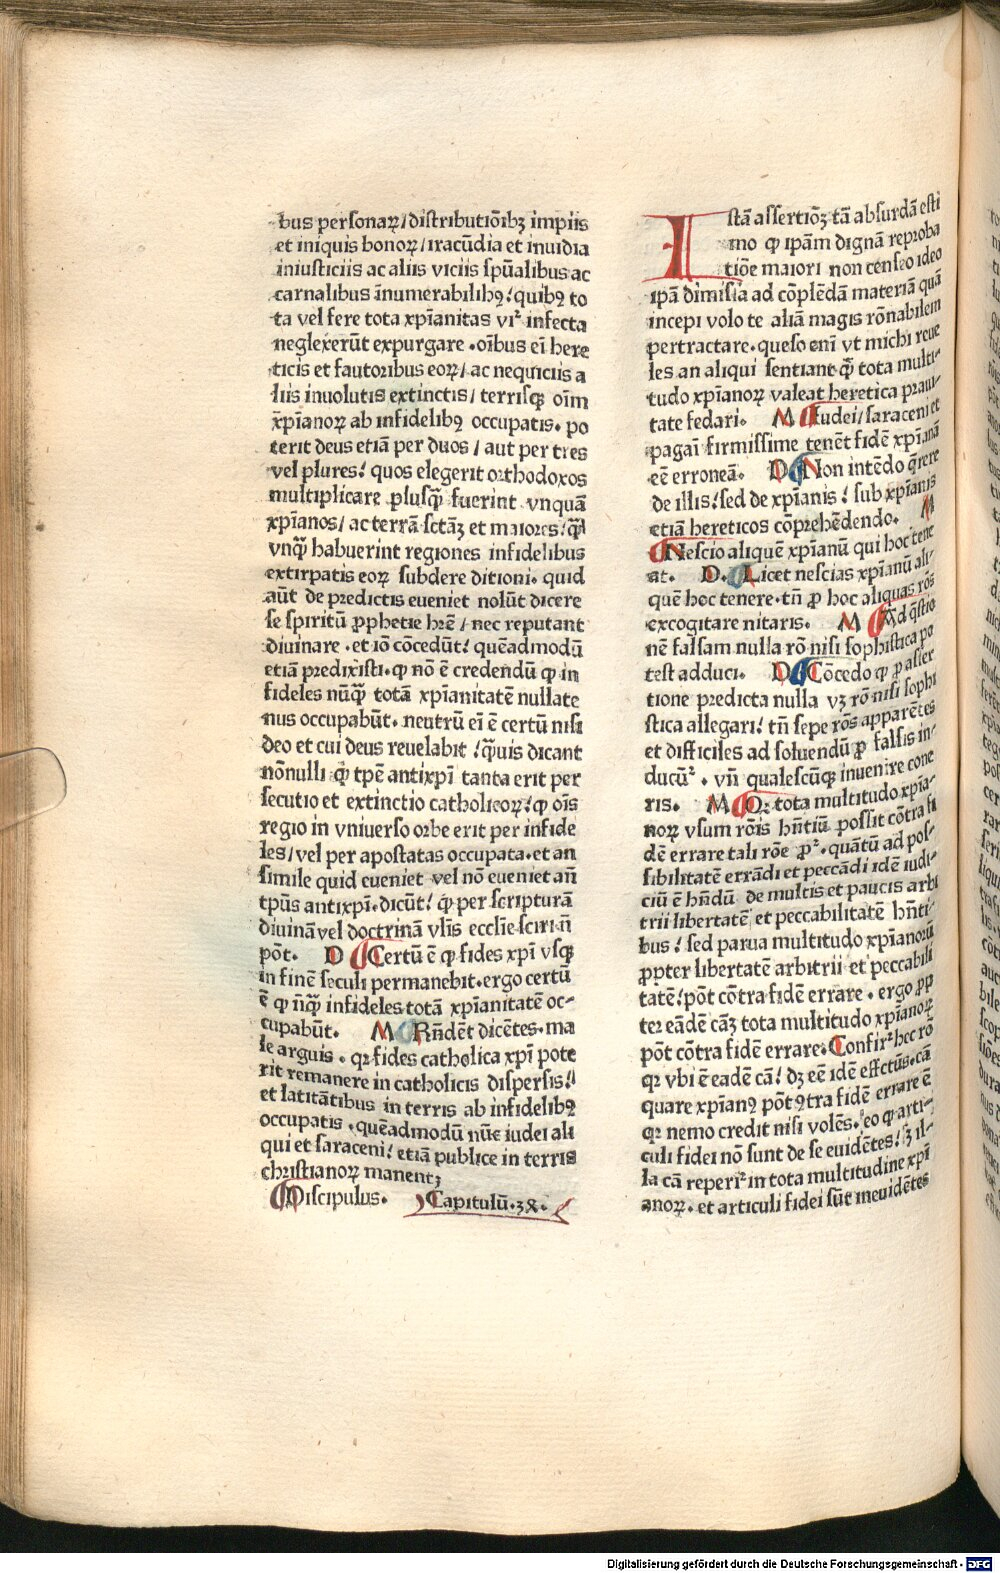 bus personaꝝ/distributiōibꝫ impiis
et iniquis bonoꝝ/iracūdia et inuidia
iniusticiis ac aliis viciis spūalibus ac
carnalibus īnumerabilibꝰ! quibꝰ to
ta vel fere tota xp̄ianitas viꝛ infecta
neglexerūt expurgare. oībus eī here
ticis et fautoribus eoꝝ/ ac nequiciis a
liis inuolutis extinctis/ terrisqꝫ oīm
xp̄ianoꝝ ab infidelibꝰ occupatis. po
terit deus etiā per duos/ aut per tres
vel plures! quos elegerit orthodoxos
multiplicare plusq̄ȝ fuerint vnquā
xp̄ianos/ ac terrā sctāȝ et maiores! q̄ȝ
vnq̄ȝ habuerint regiones infidelibus
extirpatis eoꝝ subdere ditioni. quid
aūt de predictis eueniet nolūt dicere
se spiritū ꝓphetie hr̄e/ nec reputant
diuinare. et iō cōcedūt! quēadmodū
etiā predixisti. ꝙ nō ē credendū ꝙ in
fideles nūq̄ȝ totā xp̄ianitatē nullate
nus occupabūt. neutrū eī ē certū nisi
deo et cui deus reuelabit! q̄uis dicant
nōnulli ꝙ tp̄e antixp̄i tanta erit per
secutio et extinctio catholicoꝝ! ꝙ oīs
regio in vniuerso orbe erit per infide
les/vel per apostatas occupata. et an
simile quid eueniet vel nō eueniet añ
tp̄us antixp̄i. dicūt! ꝙ per scripturā
diuinā vel doctrinā vl̄is ecclīe sciri ñ
pōt. D Certū ē ꝙ fides xp̄i vsqꝫ
in finē seculi permanebit. ergo certū
ē ꝙ nūq̄ȝ infideles totā xp̄ianitatē oc-
cupabūt. M Rn̄dēt dicētes. ma
le arguis. qꝛ fides catholica xp̄i pote
rit remanere in catholicis dispersis!
et latitātibus in terris ab infidelibꝰ
occupatis. quēadmodū nūc iudei ali
qui et saraceni! etiā publice in terris
christianoꝝ manent;
Discipulus. Capitulū. 30.
Istā assertiōȝ tā absurdā esti
mo ꝙ ip̄am dignā reproba
tiōe maiori non censeo ideo
ip̄a dimissa ad cōplēdā materiā quā
incepi volo te aliā magis rōnabilem
pertractare. queso enī vt michi reue
les an aliqui sentiant ꝙ tota multi-
tudo xp̄ianoꝝ valeat heretica praui-
tate fedari. M Iudei/saraceni et
pagāi firmissime tenēt fidē xp̄ianā
eē erroneā. D Non intēdo q̄rere
de illis! sed de xp̄ianis! sub xp̄ianis
etiā hereticos cōprehēdendo. M
Nescio aliquē xp̄ianū qui hoc tene
at. D. Licet nescias xp̄ianū ali-
quē hoc tenere. tn̄ ꝓ hoc aliquas rōs
excogitare nitaris. M Ad q̄stio
nē falsam nulla rō nisi sophistica po
test adduci. D Cōcedo ꝙ ꝓ asser
tione predicta nulla vȝ rō nisi sophi
stica allegari! tn̄ sepe rōs apparētes
et difficiles ad soluendū ꝓ falsis in-
ducūꝛ. vn̄ qualescūqꝫ inuenire cone
ris. M Qꝛ tota multitudo xp̄ia-
noꝝ vsum rōis hn̄tiū possit cōtra fi
dē errare tali rōe ꝓꝛ. quātū ad pos-
sibilitatē errādi et peccādi idē iudi-
ciū ē hn̄dū de multis et paucis arbi
trii libertatē et peccabilitatē hn̄ti-
bus! sed parua multitudo xp̄ianorū
ꝓpter libertatē arbitrii et peccabili
tatē! pōt cōtra fidē errare. ergo ꝓp
ter eādē cāȝ tota multitudo xp̄ianoꝝ
pōt cōtra fidē errare. Confirꝛ hec rō
qꝛ vbi ē eadē cā! dȝ eē idē effctūs. cā
quare xp̄ianꝰ pōt ꝯtra fidē errare ē
qꝛ nemo credit nisi volēs. eo ꝙ arti-
culi fidei nō sunt de se euidētes! ȝ il-
la cā reperiꝛ in tota multitudine xp̄i
anoꝝ. et articuli fidei sūt ineuidētes
Digitalisierung gefördert durch die Deutsche Forschungsgemeinschaft - DFG